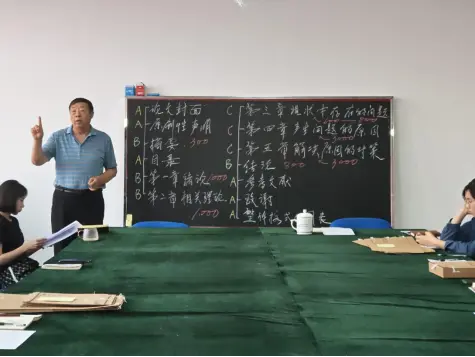 A 论文封面
A 原创性声明
B 摘要 300
A 目录
B 第一章 绪论 1000
B 第二章 相关理论 1000
C 第三章 现状中存在的问题 3000
C 第四章 产生问题的原因 3000
C 第五章 解决原因的对策
B 结论 500 3000
A 参考文献
A 致谢
A 整体格式